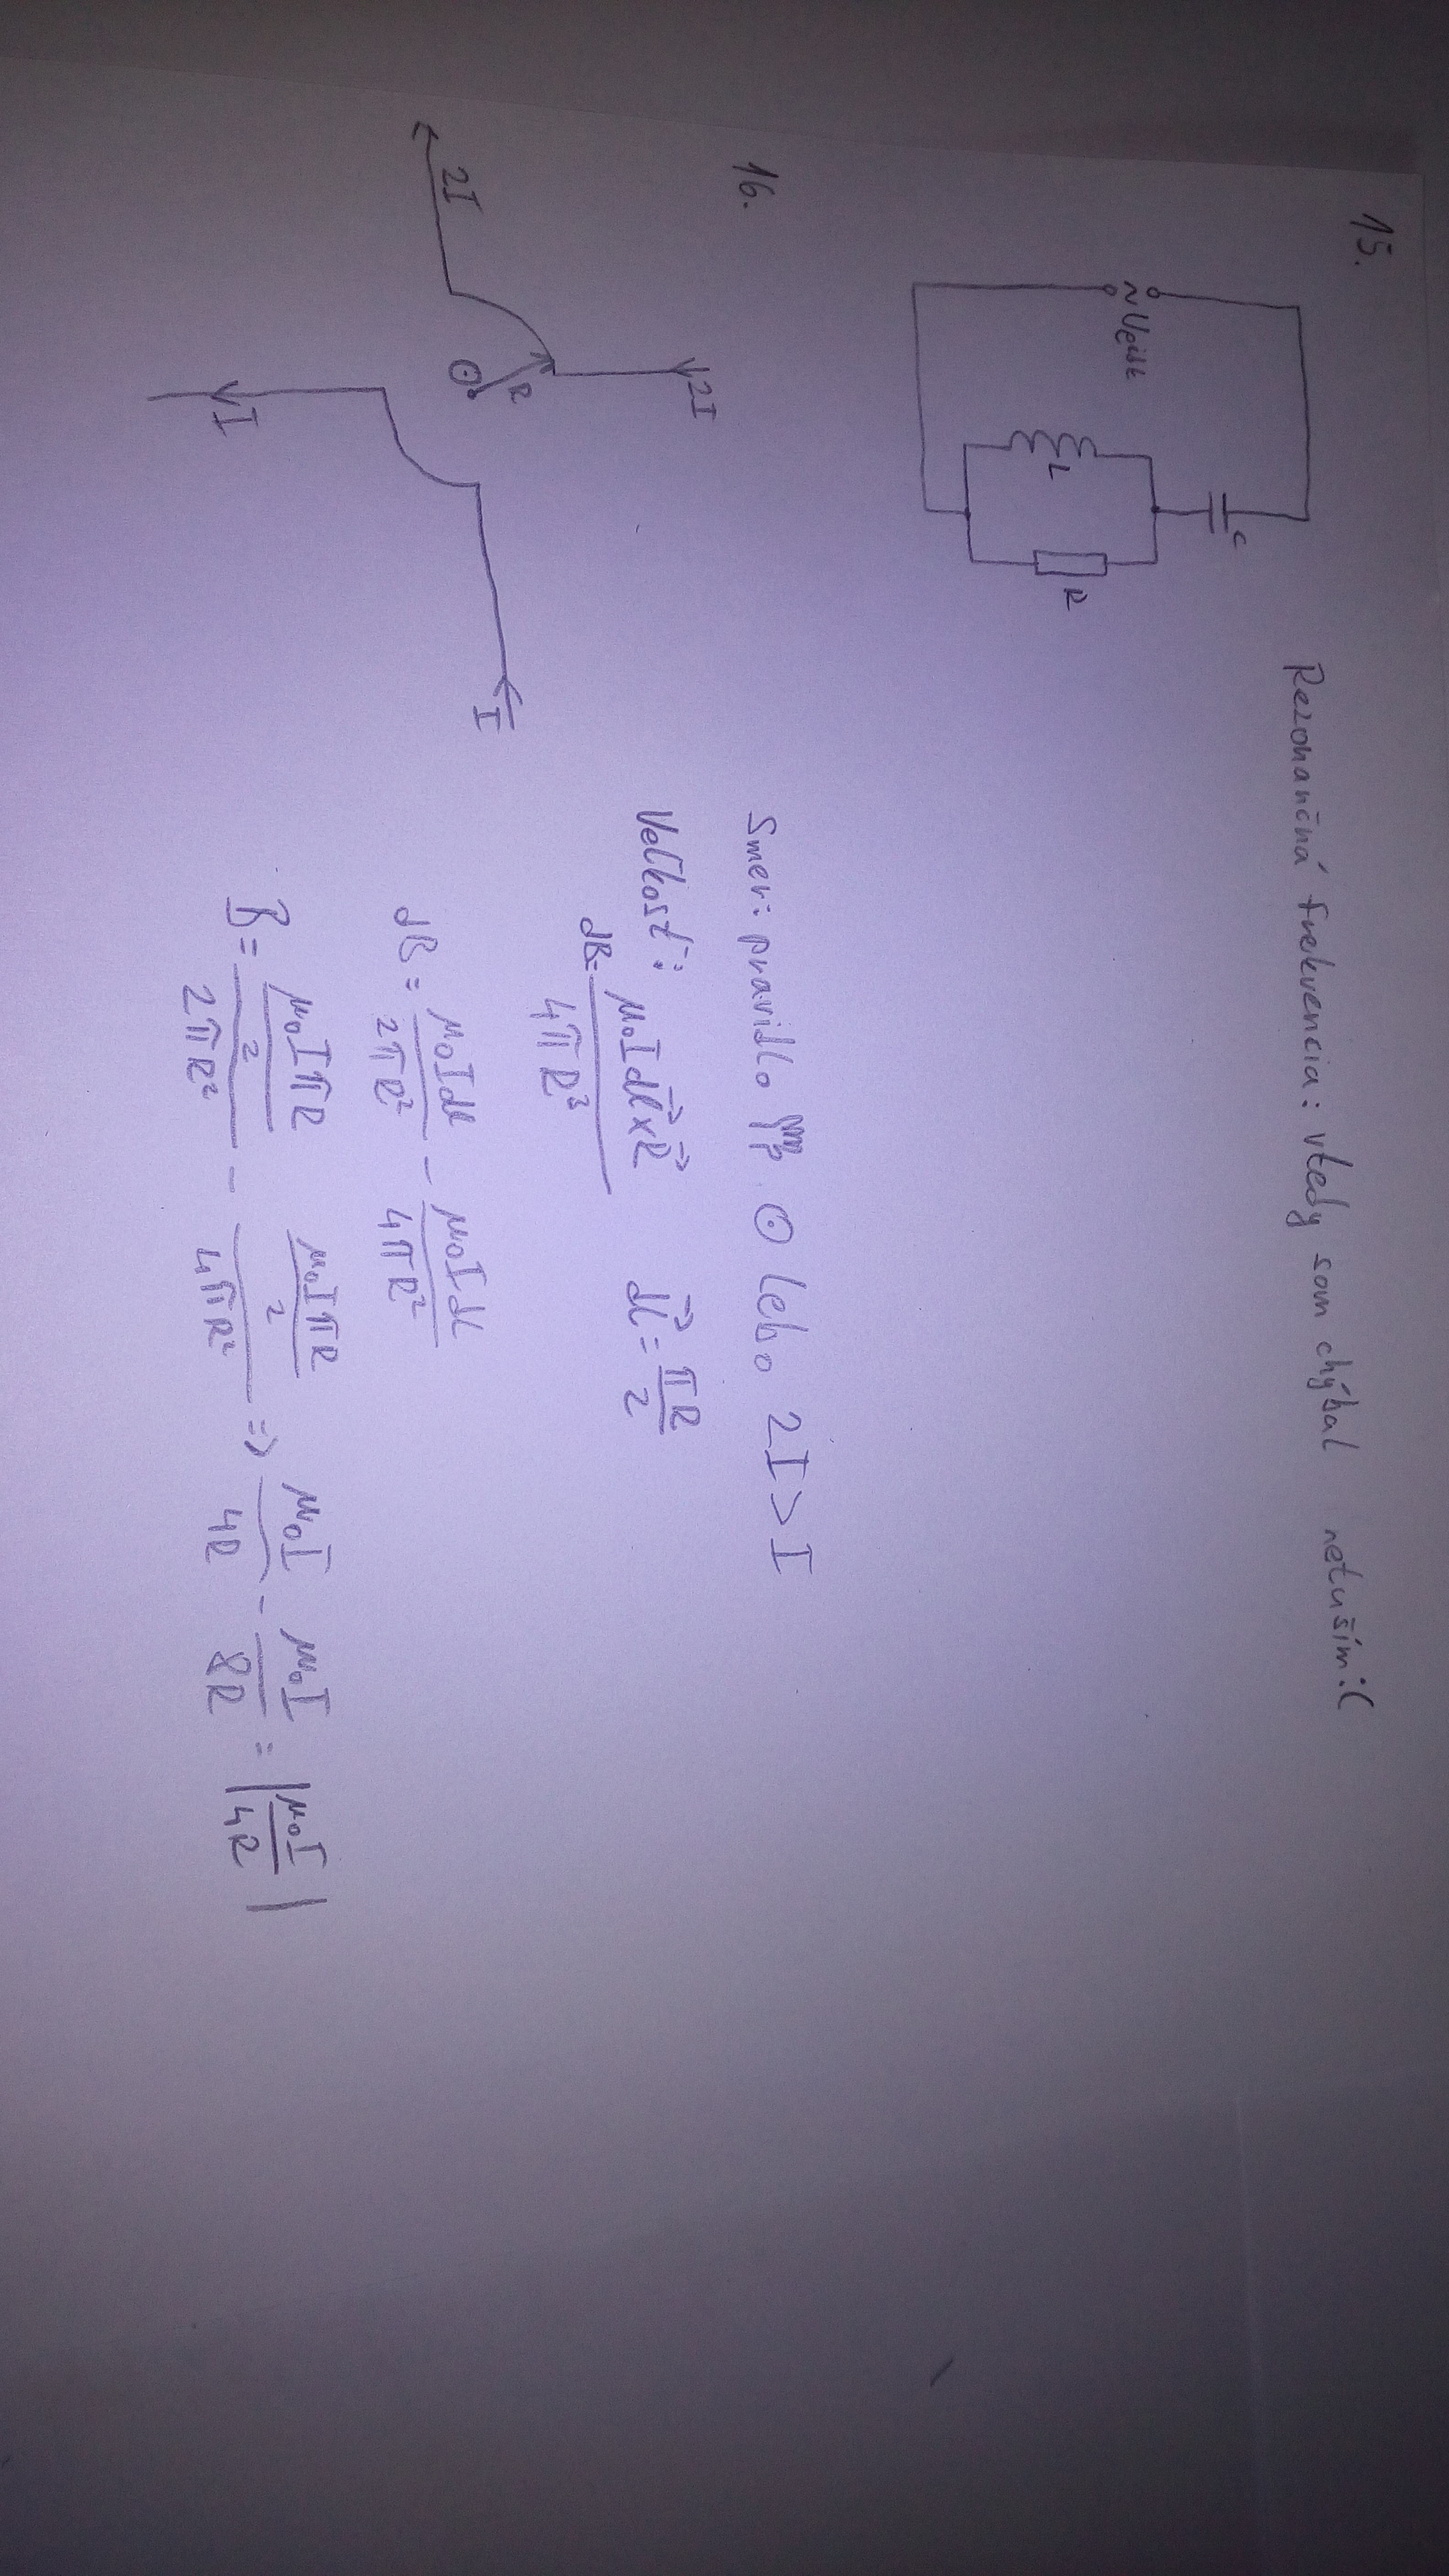 15.
Rezonančná frekvencia: vtedy som chýbal netuším :(
C
~Ueist
L
R
16.
2I
2I
R
I
I
Smer: pravidlo ⊙ lebo 2I > I
Veľkosť:
dB = μ₀I dl⃗×R⃗ / 4πR³ dl⃗ = πR/2
dB = μ₀Idl / 2πR² - μ₀Idl / 4πR²
B = (μ₀IπR/2) / 2πR² - (μ₀IπR/2) / 4πR² => μ₀I/4R - μ₀I/8R = |μ₀I/4R|